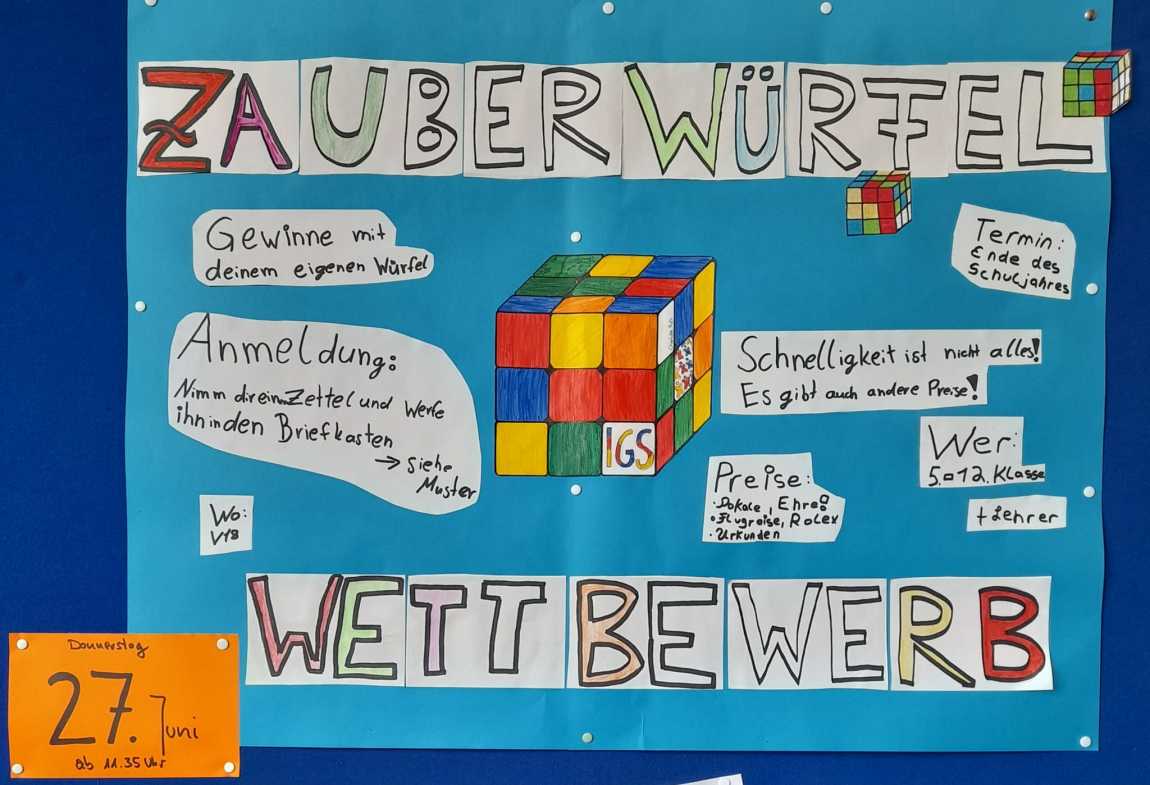 ZAUBERWÜRFEL
Gewinne mit
deinem eigenen Würfel
Termin:
Ende des
Schuljahres
Anmeldung:
Nimm dir ein Zettel und werfe
ihn in den Briefkasten
→ siehe
Muster
Schnelligkeit ist nicht alles!
Es gibt auch andere Preise!
Wer:
5.-12. Klasse
+Lehrer
IGS
Preise:
• Pokale, Ehre
• Flugreise, Rolex
• Urkunden
Wo:
WETTBEWERB
Donnerstag
27. Juni
ab 11.35 Uhr